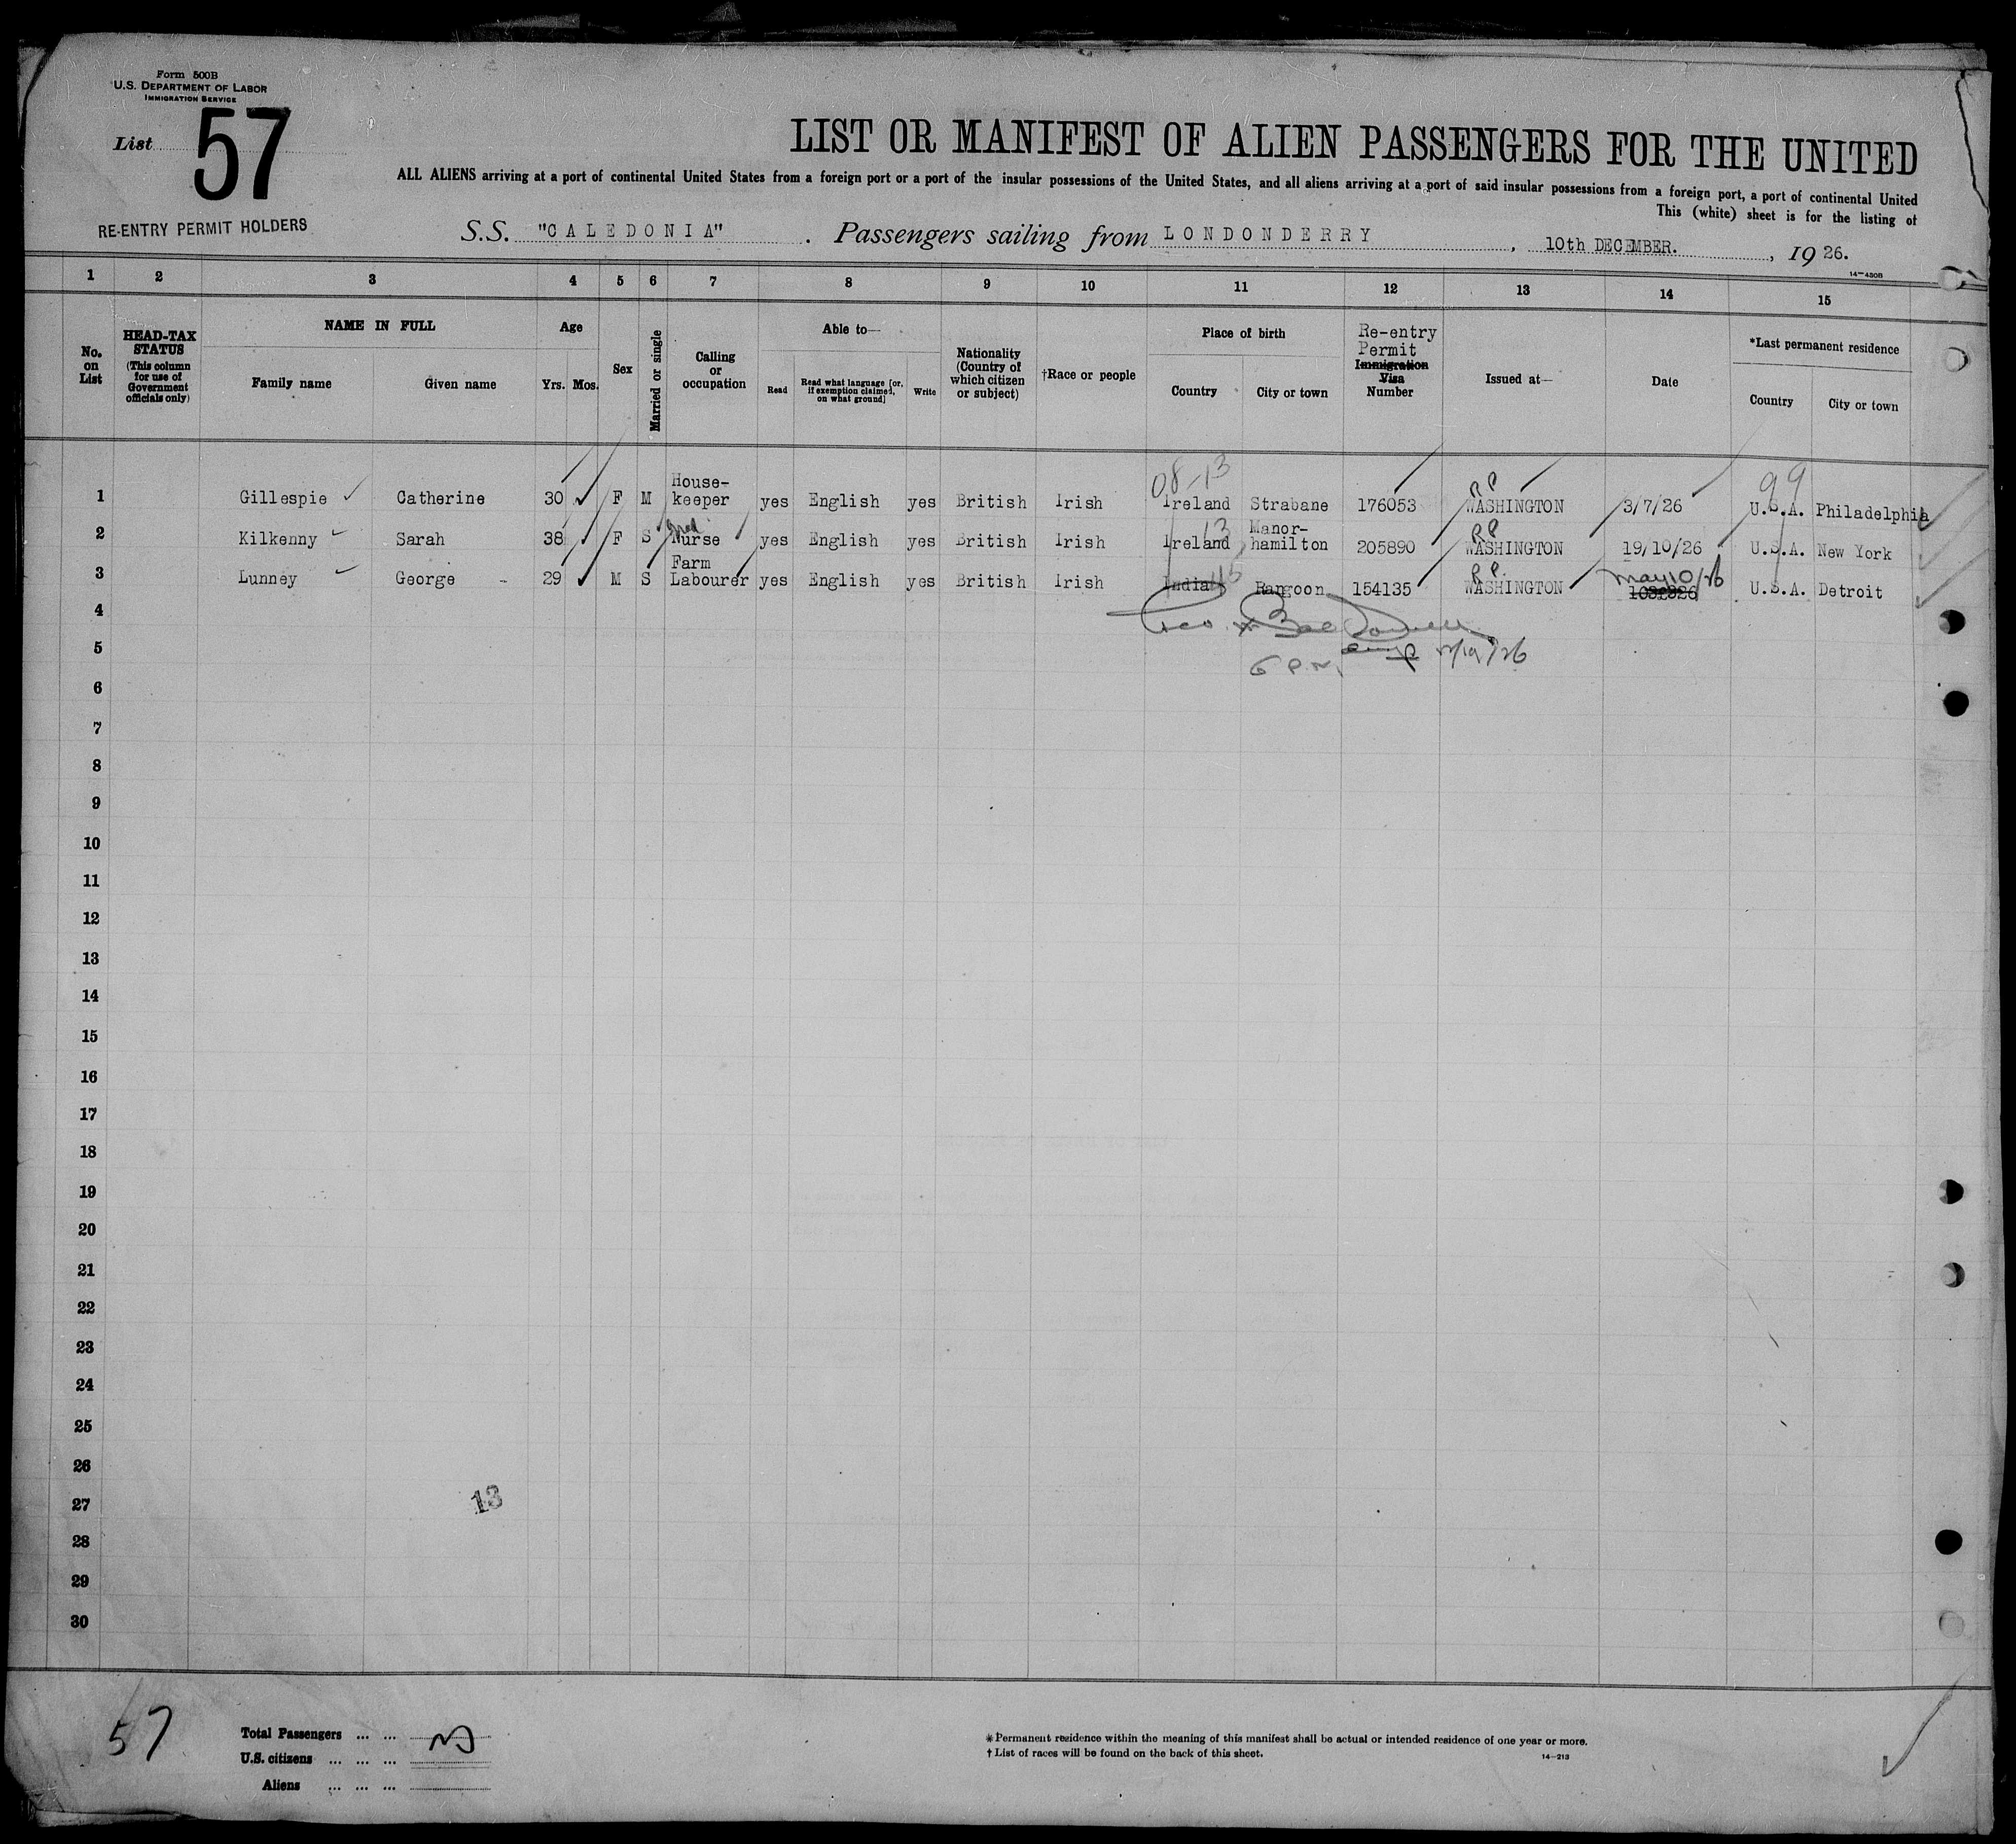 Form 500B
U.S. DEPARTMENT OF LABOR
IMMIGRATION SERVICE
List 57
RE-ENTRY PERMIT HOLDERS
LIST OR MANIFEST OF ALIEN PASSENGERS FOR THE UNITED
ALL ALIENS arriving at a port of continental United States from a foreign port or a port of the insular possessions of the United States, and all aliens arriving at a port of said insular possessions from a foreign port, a port of continental United
This (white) sheet is for the listing of
S.S. "CALEDONIA". Passengers sailing from LONDONDERRY, 10th DECEMBER., 1926.
14-430B
1 2 3 4 5 6 7 8 9 10 11 12 13 14 15
No. on List
HEAD-TAX STATUS (This column for use of Government officials only)
NAME IN FULL
Family name Given name
Age
Yrs. Mos.
Sex
Married or single
Calling or occupation
Able to—
Read Read what language [or, if exemption claimed, on what ground] Write
Nationality (Country of which citizen or subject)
†Race or people
Place of birth
Country City or town
Re-entry Permit Immigration Visa Number
Issued at—
Date
*Last permanent residence
Country City or town
08-13 99
1 Gillespie Catherine 30 F M House-keeper yes English yes British Irish Ireland Strabane 176053 RP WASHINGTON 3/7/26 U.S.A. Philadelphia
2 Kilkenny Sarah 38 F S Nurse yes English yes British Irish Ireland 13 Manor-hamilton 205890 RP WASHINGTON 19/10/26 U.S.A. New York
3 Lunney George 29 M S Farm Labourer yes English yes British Irish India Rangoon 154135 RP. WASHINGTON May 10/26 U.S.A. Detroit
4
5
6 P.M.
6
7
8
9
10
11
12
13
14
15
16
17
18
19
20
21
22
23
24
25
26
27
13
28
29
30
57
Total Passengers ... ...
U.S. citizens ... ... ...
Aliens ... ... ...
*Permanent residence within the meaning of this manifest shall be actual or intended residence of one year or more.
†List of races will be found on the back of this sheet.
14-213